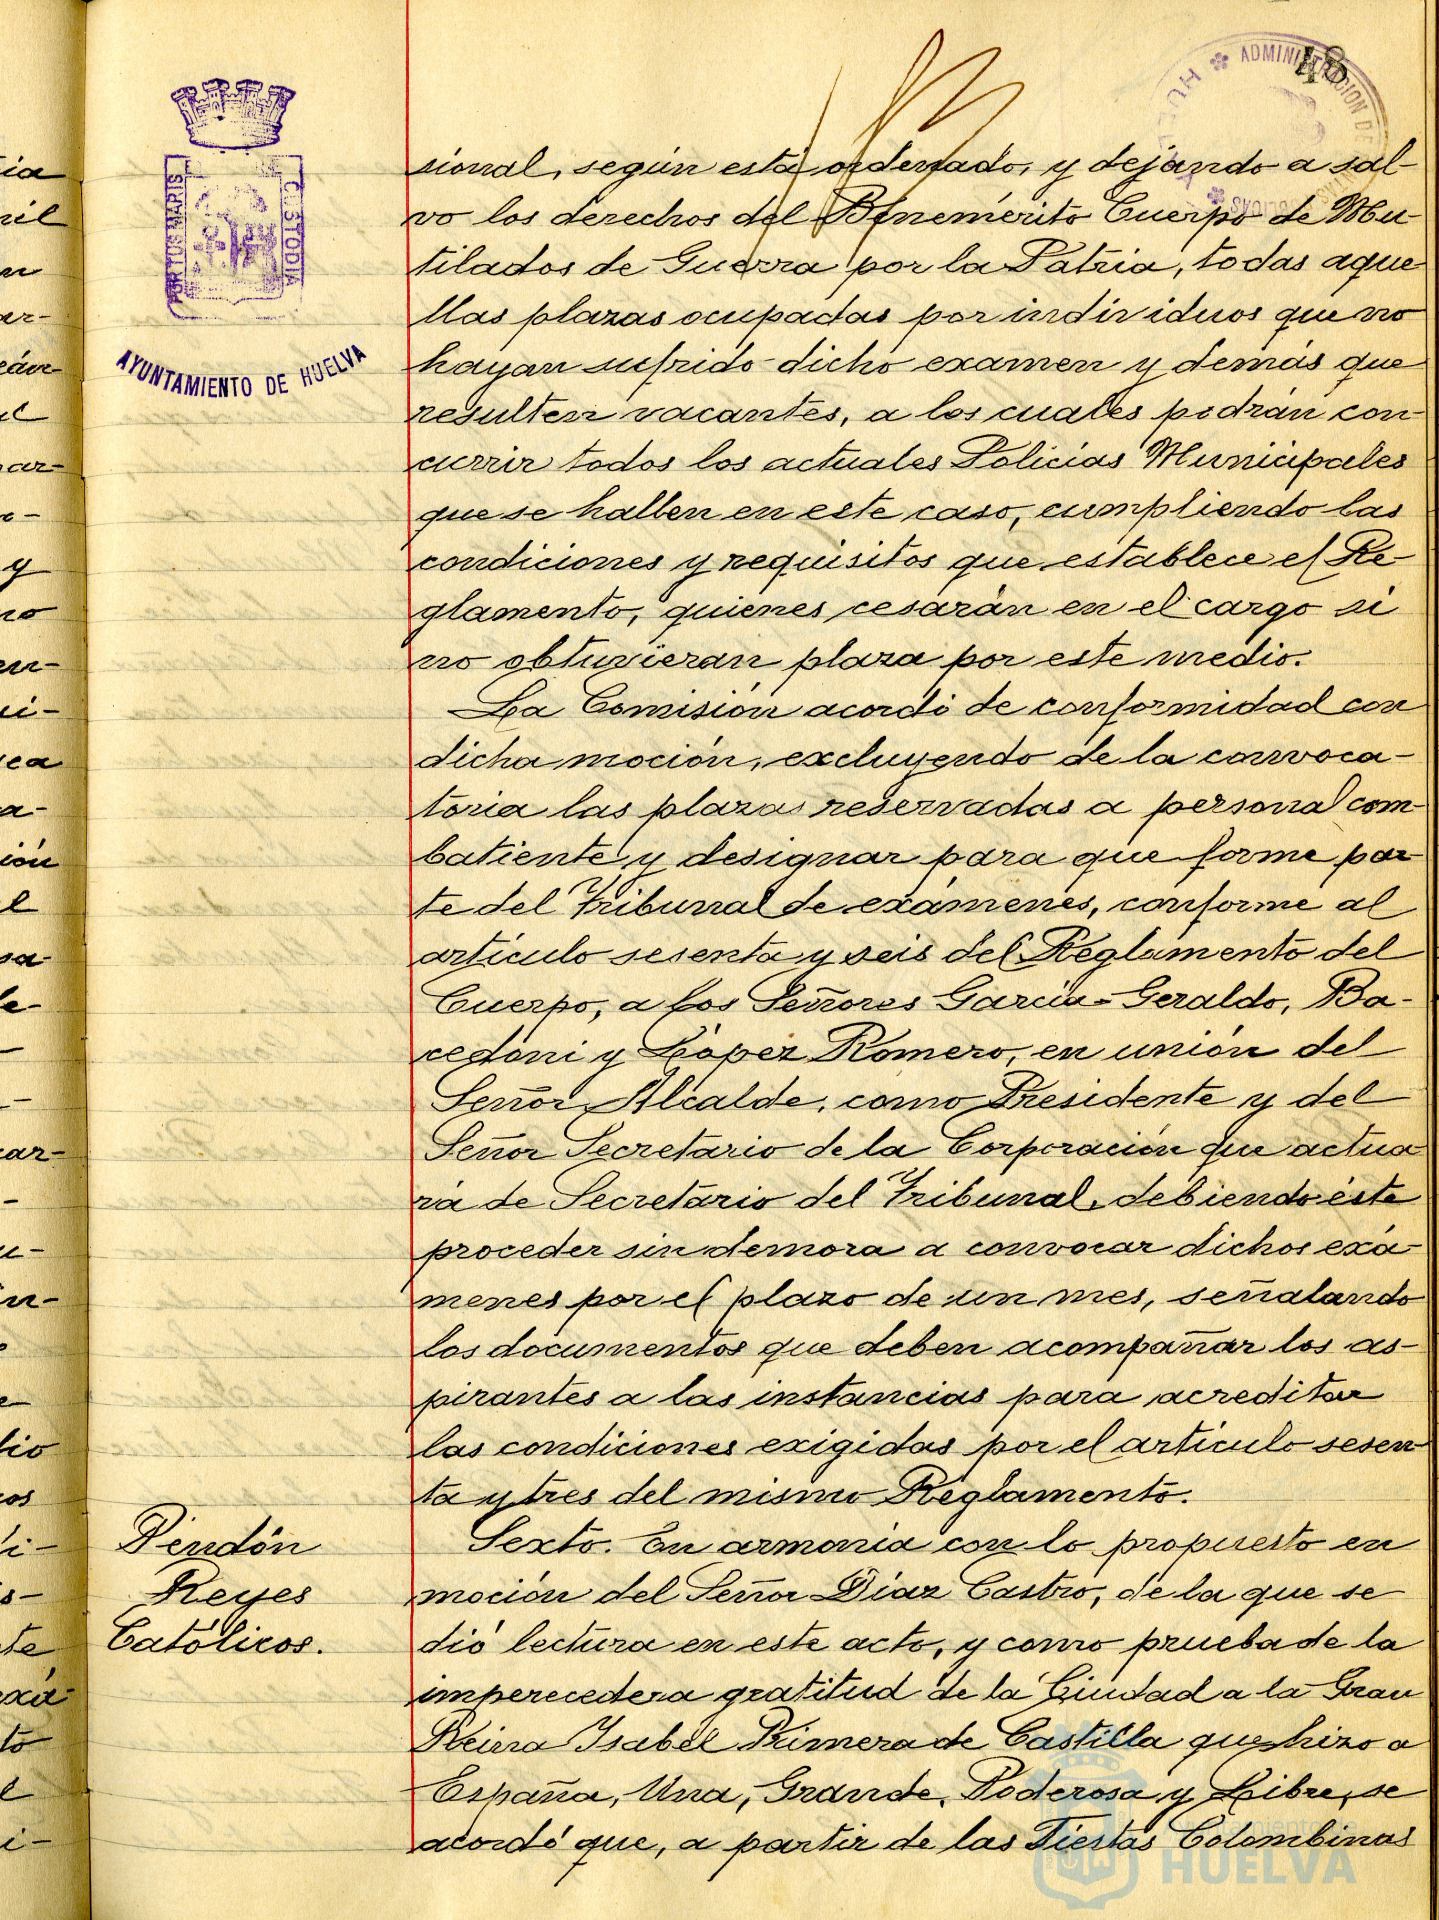 48
ADMINISTRACION DE
HUELVA
PORTUS MARIS
CUSTODIA
AYUNTAMIENTO DE HUELVA
sional, según está ordenado, y dejando a sal-
vo los derechos del Benemérito Cuerpo de Mu-
tilados de Guerra por la Patria, todas aque
llas plazas ocupadas por individuos que no
hayan sufrido dicho examen y demás que
resulten vacantes, a los cuales podrán con-
currir todos los actuales Policías Municipales
que se hallen en este caso, cumpliendo las
condiciones y requisitos que establece el Re-
glamento, quienes cesarán en el cargo si
no obtuvieran plaza por este medio.
La Comisión acordó de conformidad con
dicha moción, excluyendo de la convoca-
toria las plazas reservadas a personal com-
batiente y designar para que forme par-
te del Tribunal de exámenes, conforme al
artículo sesenta y seis del Reglamento del
Cuerpo, a los Señores García-Geraldo, Ba-
cedóni y López Romero, en unión del
Señor Alcalde, como Presidente y del
Señor Secretario de la Corporación que actua
rá de Secretario del Tribunal, debiendo éste
proceder sin demora a convocar dichos exá-
menes por el plazo de un mes, señalando
los documentos que deben acompañar los as-
pirantes a las instancias para acreditar
las condiciones exigidas por el artículo sesen-
ta y tres del mismo Reglamento.
Pendón
Reyes
Católicos.
Sexto. En armonía con lo propuesto en
moción del Señor Díaz Castro, de la que se
dió lectura en este acto, y como prueba de la
imperecedera gratitud de la Ciudad a la Gran
Reina Isabel Primera de Castilla que hizo a
España, Una, Grande, Poderosa y Libre, se
acordó que, a partir de las Fiestas Colombinas
HUELVA